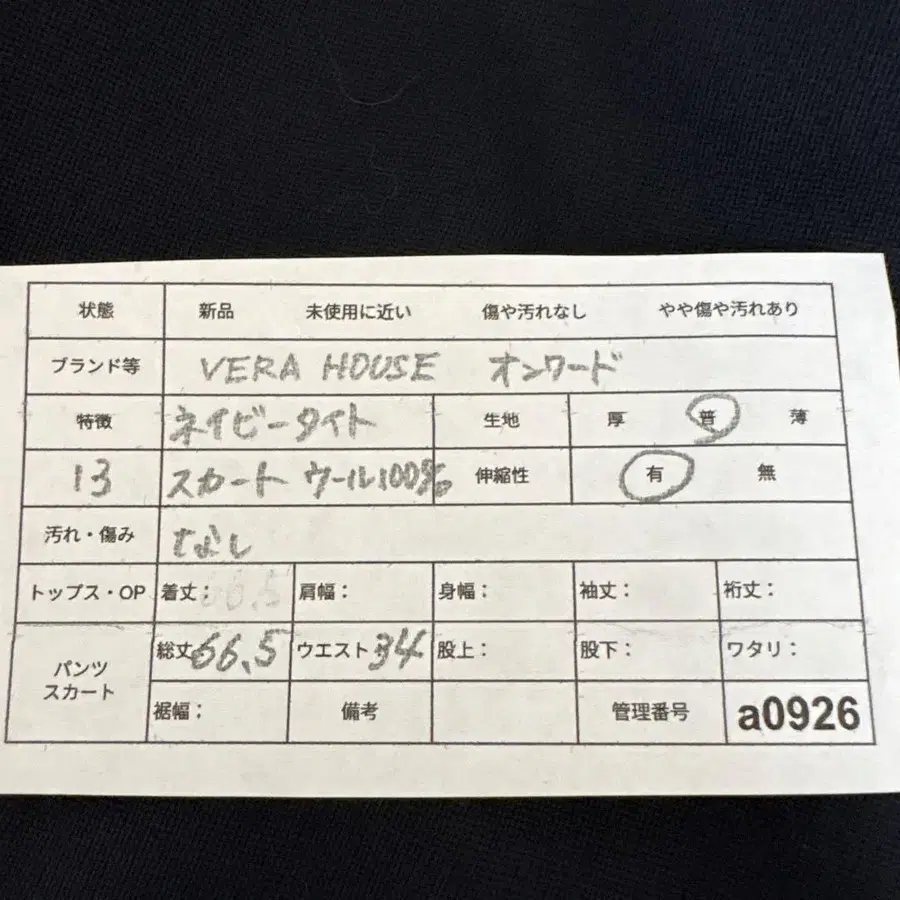 状態 新品 未使用に近い 傷や汚れなし やや傷や汚れあり
ブランド等 VERA HOUSE オンワード
特徴 ネイビータイト 生地 厚 普 薄
13 スカート ウール100% 伸縮性 有 無
汚れ・傷み なし
トップス・OP 着丈: 66.5 肩幅: 身幅: 袖丈: 裄丈:
パンツ スカート 総丈 66.5 ウエスト 34 股上: 股下: ワタリ:
裾幅: 備考 管理番号 a0926